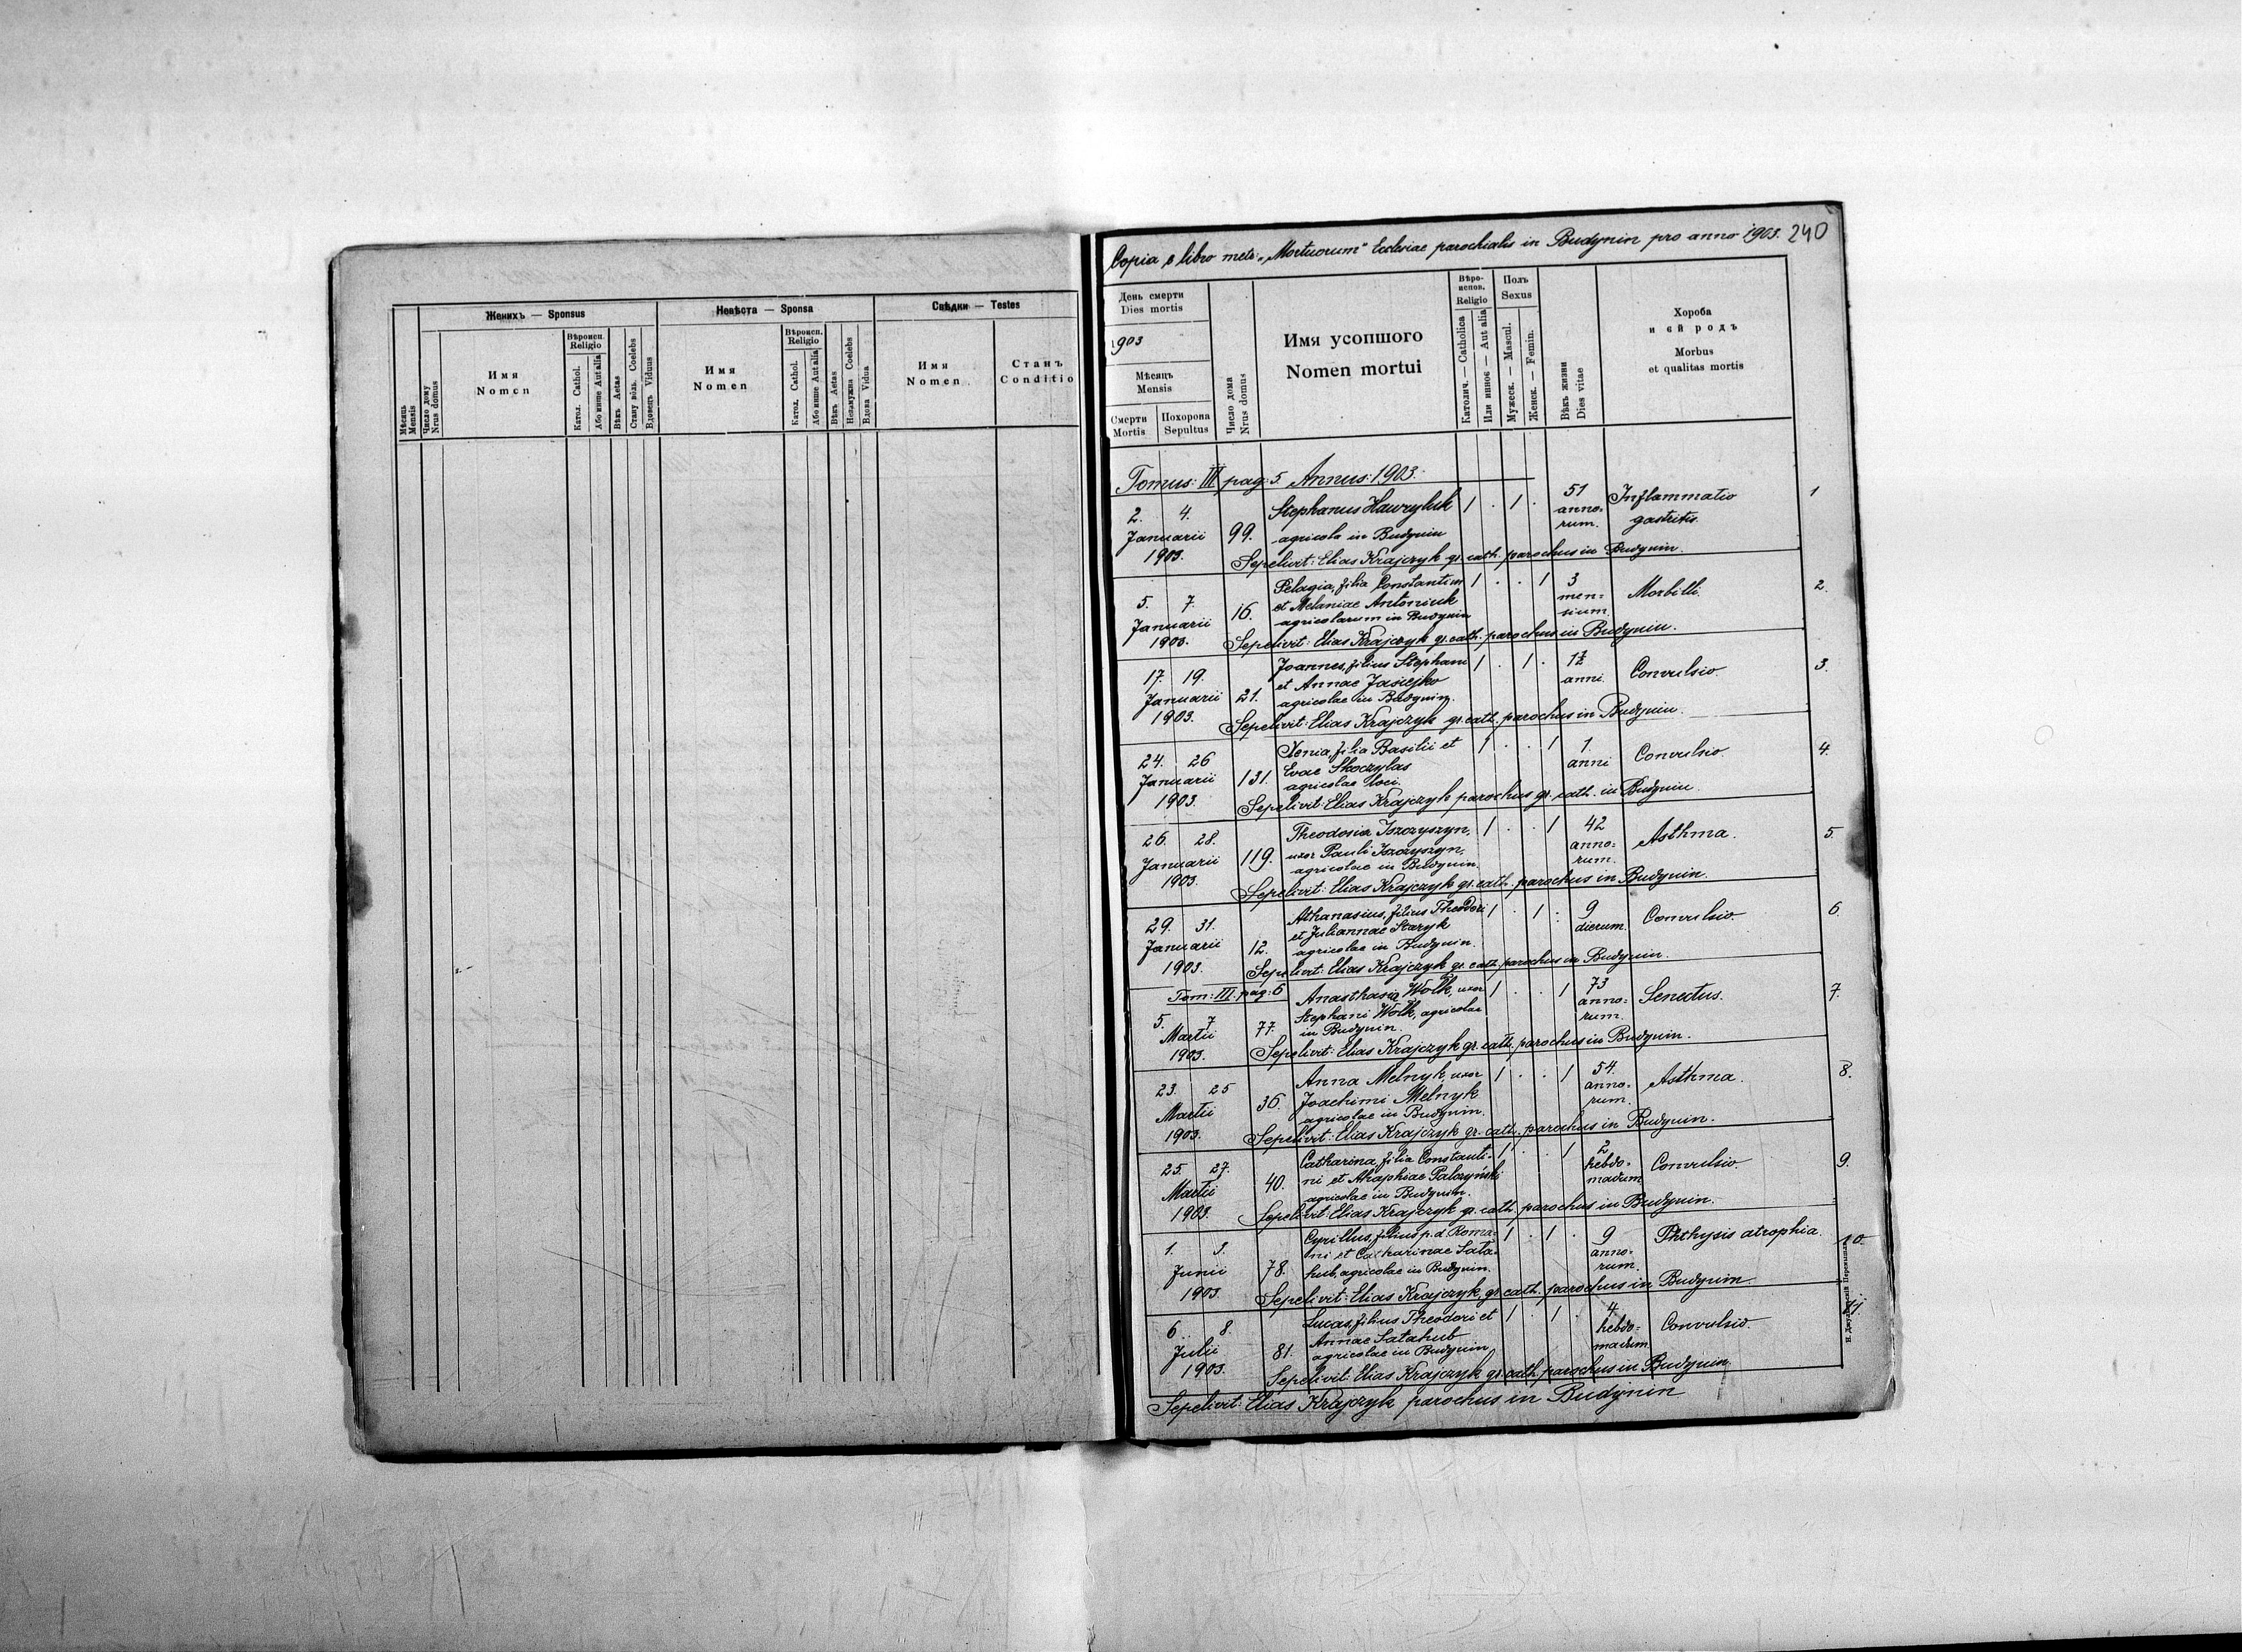 Женихъ — Sponsus
Невѣста — Sponsa
Свѣдки — Testes
Мѣсяць
Mensis
Число дому
Nrus domus
Имя
Nomen
Вѣроисп.
Religio
Катол. Cathol.
Або инше Aut alia
Вѣкъ Aetas
Стану вôльн. Coelebs
Вдовець Viduus
Имя
Nomen
Вѣроисп.
Religio
Катол. Cathol.
Або инше Aut alia
Вѣкъ Aetas
Незамужна Coelebs
Вдова Vidua
Имя
Nomen
Станъ
Conditio
Copia e libro metr. „Mortuorum" Ecclesiae parochialis in Budynin pro anno 1903. 240
День смерти
Dies mortis
1903
Мѣсяць
Mensis
Смерти
Mortis
Похорона
Sepultus
Число дома
Nrus domus
Имя усопшого
Nomen mortui
Вѣро-
испов.
Religio
Католич. — Catholica
Или инное — Aut alia
Полъ
Sexus
Мужеск. — Mascul.
Женск. — Femin.
Вѣкъ жизни
Dies vitae
Хороба
и ей родъ
Morbus
et qualitas mortis
Tomus: III pag: 5 Annus: 1903.
2. 4. Stephanus Hawryluk 1 . 1 . 51 Inflammatio 1
Januarii 99. agricola in Budynin anno= gastritis.
1903. rum.
Sepelivit: Elias Krajczyk gr. cath. parochus in Budynin.
Pelagia, filia Constantini 1 . . 1 3 Morbilli. 2.
5. 7. 16. et Melaniae Antoniuk men=
Januarii agricolarum in Budynin sium.
1903. Sepelivit: Elias Krajczyk gr. cath. parochus in Budynin.
Joannes, filius Stephani 1 . 1 . 1½ Convulsio. 3.
17. 19. et Annae Jasiejko anni.
Januarii 21. agricolae in Budynin.
1903. Sepelivit: Elias Krajczyk gr. cath. parochus in Budynin.
Xenia, filia Basilii et 1 . . 1 1. Convulsio. 4.
24. 26 Evae Skoczylas anni
Januarii 131. agricolae loci.
1903. Sepelivit: Elias Krajczyk parochus gr. cath. in Budynin.
26. 28. Theodosia Iszczyszyn, 1 . . 1 42 Asthma. 5.
Januarii 119. uxor Pauli Iszczyszyn, anno=
1903. agricolae in Budynin. rum.
Sepelivit: Elias Krajczyk gr. cath. parochus in Budynin.
29. 31. Athanasius, filius Theodori 1 . 1 . 9 Convulsio. 6.
Januarii 12. et Juliannae Staryk dierum.
1903. agricolae in Budynin.
Sepelivit: Elias Krajczyk gr. cath. parochus in Budynin.
Tom: III. pag: 6 Anasthasia Wolk, uxor 1 . . 1 73 Senectus. 7.
5. 7 77. Stephani Wolk, agricolae anno=
Martii in Budynin. rum.
1903. Sepelivit: Elias Krajczyk gr. cath. parochus in Budynin.
23. 25 Anna Melnyk, uxor 1 . . 1 54. Asthma. 8.
Martii 36. Joachimi Melnyk anno=
1903. agricolae in Budynin. rum.
Sepelivit: Elias Krajczyk gr. cath. parochus in Budynin.
25. 27. Catharina, filia Constanti= 1 . . 1 2 Convulsio. 9.
Martii 40. ni et Ahaphiae Palczyński hebdo=
1903. agricolae in Budynin. madum
Sepelivit Elias Krajczyk gr. cath. parochus in Budynin.
1. 3. Cyrillus, filius p. d. Roma= 1 . 1 . 9 Phthysis atrophia. 10.
Junii 78. ni et Catharinae Sata= anno=
1903. hub, agricolae in Budynin. rum.
Sepelivit: Elias Krajczyk, gr. cath. parochus in Budynin.
6. 8. Lucas, filius Theodori et 1 . 1 . 4 Convulsio. 11.
Julii 81. Annae Satahub hebdo=
1903. agricolae in Budynin madum
Sepelivit: Elias Krajczyk gr. cath. parochus in Budynin.
Sepelivit: Elias Krajczyk parochus in Budynin